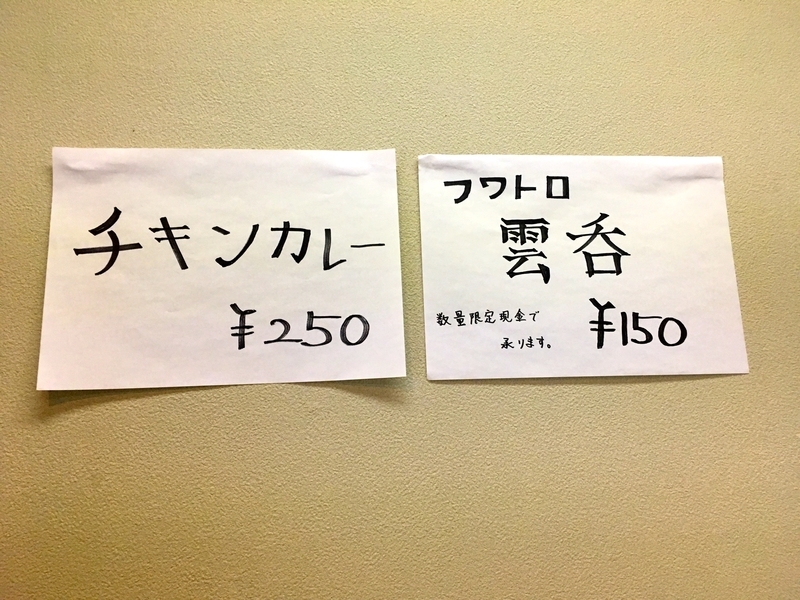 チキンカレー
¥250
フワトロ
雲呑
数量限定現金で
承ります。
¥150